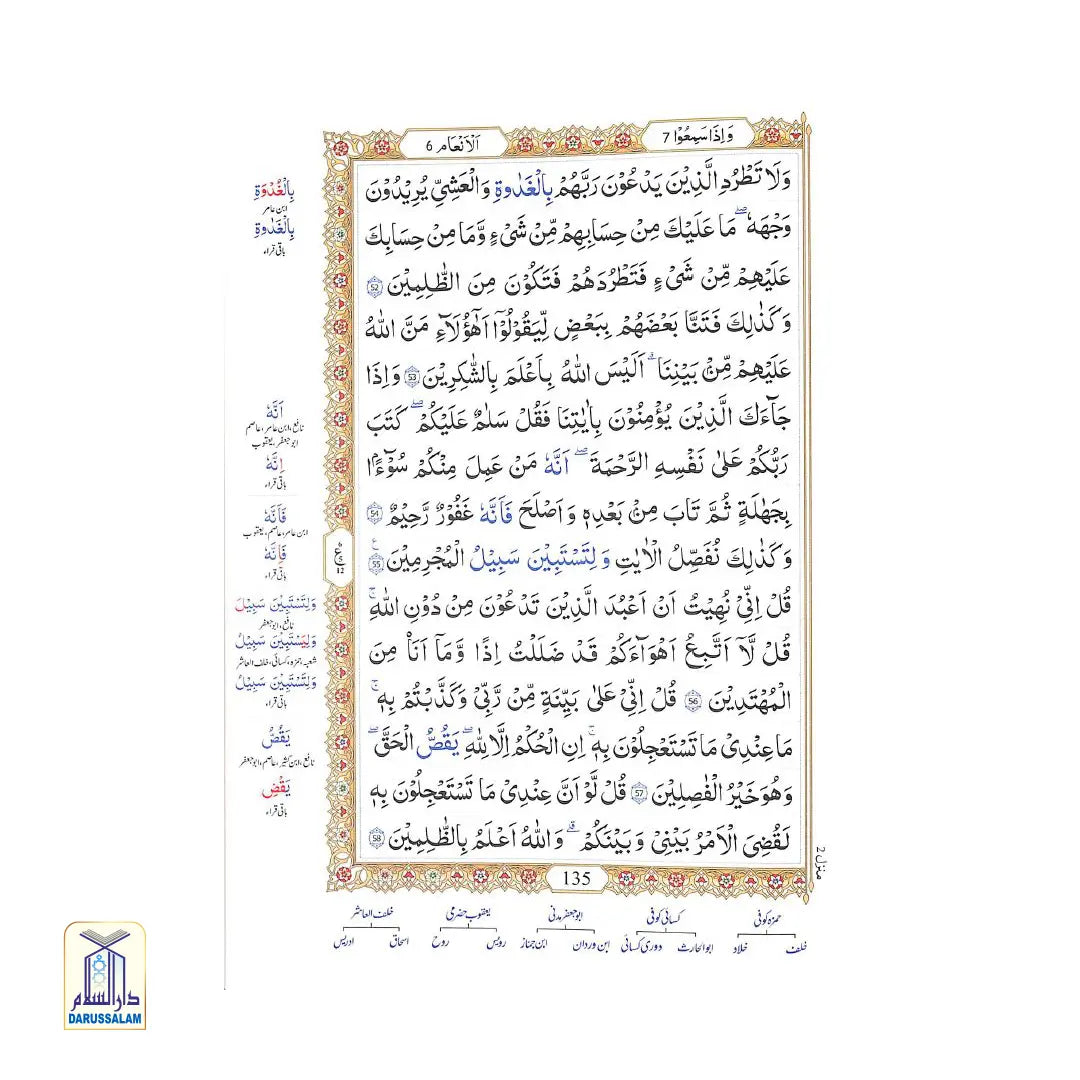 وَاِذَا سَمِعُوْا 7
اَلْاَنْعَام 6
وَلَا تَطْرُدِ الَّذِيْنَ يَدْعُوْنَ رَبَّهُمْ بِالْغَدٰوةِ وَالْعَشِيِّ يُرِيْدُوْنَ
وَجْهَهٗ ؕ مَا عَلَيْكَ مِنْ حِسَابِهِمْ مِّنْ شَيْءٍ وَّمَا مِنْ حِسَابِكَ
عَلَيْهِمْ مِّنْ شَيْءٍ فَتَطْرُدَهُمْ فَتَكُوْنَ مِنَ الظّٰلِمِيْنَ 52
وَكَذٰلِكَ فَتَنَّا بَعْضَهُمْ بِبَعْضٍ لِّيَقُوْلُوْٓا اَهٰٓؤُلَآءِ مَنَّ اللّٰهُ
عَلَيْهِمْ مِّنْۢ بَيْنِنَا ؕ اَلَيْسَ اللّٰهُ بِاَعْلَمَ بِالشّٰكِرِيْنَ 53 وَاِذَا
جَآءَكَ الَّذِيْنَ يُؤْمِنُوْنَ بِاٰيٰتِنَا فَقُلْ سَلٰمٌ عَلَيْكُمْ كَتَبَ
رَبُّكُمْ عَلٰى نَفْسِهِ الرَّحْمَةَ اَنَّهٗ مَنْ عَمِلَ مِنْكُمْ سُوْٓءًۢا
بِجَهَالَةٍ ثُمَّ تَابَ مِنْۢ بَعْدِهٖ وَاَصْلَحَ فَاَنَّهٗ غَفُوْرٌ رَّحِيْمٌ 54
وَكَذٰلِكَ نُفَصِّلُ الْاٰيٰتِ وَلِتَسْتَبِيْنَ سَبِيْلُ الْمُجْرِمِيْنَ 55
قُلْ اِنِّيْ نُهِيْتُ اَنْ اَعْبُدَ الَّذِيْنَ تَدْعُوْنَ مِنْ دُوْنِ اللّٰهِ
قُلْ لَّآ اَتَّبِعُ اَهْوَآءَكُمْ قَدْ ضَلَلْتُ اِذًا وَّمَآ اَنَا۠ مِنَ
الْمُهْتَدِيْنَ 56 قُلْ اِنِّيْ عَلٰى بَيِّنَةٍ مِّنْ رَّبِّيْ وَكَذَّبْتُمْ بِهٖ
مَا عِنْدِيْ مَا تَسْتَعْجِلُوْنَ بِهٖ اِنِ الْحُكْمُ اِلَّا لِلّٰهِ يَقُصُّ الْحَقَّ
وَهُوَ خَيْرُ الْفٰصِلِيْنَ 57 قُلْ لَّوْ اَنَّ عِنْدِيْ مَا تَسْتَعْجِلُوْنَ بِهٖ
لَقُضِيَ الْاَمْرُ بَيْنِيْ وَبَيْنَكُمْ وَاللّٰهُ اَعْلَمُ بِالظّٰلِمِيْنَ 58
بِالْغُدْوَةِ
ابن عامر
بِالْغَدٰوةِ
باقی قراء
اَنَّهٗ
نافع، ابن عامر، عاصم
ابو جعفر، یعقوب
اِنَّهٗ
باقی قراء
فَاَنَّهٗ
ابن عامر، عاصم، یعقوب
فَاِنَّهٗ
باقی قراء
ع
12
وَلِتَسْتَبِيْنَ سَبِيْلَ
نافع، ابو جعفر
وَلِيَسْتَبِيْنَ سَبِيْلُ
شعبہ، حمزہ، کسائی، خلف العاشر
وَلِتَسْتَبِيْنَ سَبِيْلُ
باقی قراء
يَقُصُّ
نافع، ابن کثیر، عاصم، ابو جعفر
يَقْضِ
باقی قراء
منزل 2
135
حمزہ کوفی کسائی کوفی ابو جعفر مدنی یعقوب حضرمی خلف العاشر
خلف خلاد ابو الحارث دوری کسائی ابن وردان ابن جماز رویس روح اسحاق ادریس
دار السلام
DARUSSALAM